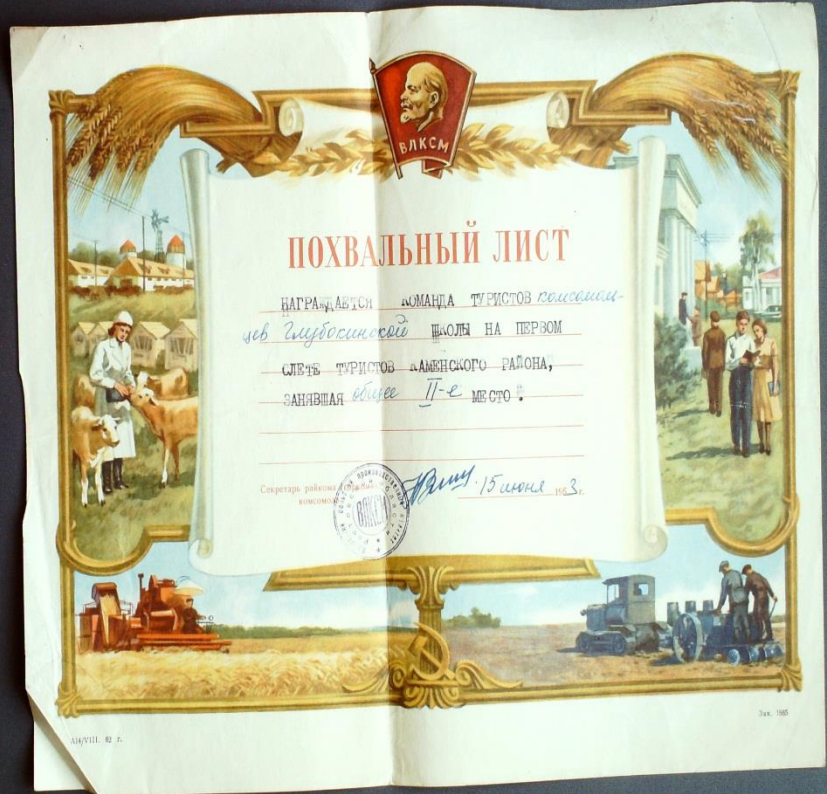 ВЛКСМ
ПОХВАЛЬНЫЙ ЛИСТ
НАГРАЖДАЕТСЯ КОМАНДА ТУРИСТОВ комсомол-
цев Глубокинской ШКОЛЫ НА ПЕРВОМ
СЛЕТЕ ТУРИСТОВ КАМЕНСКОГО РАЙОНА,
ЗАНЯВШАЯ общее II-е МЕСТО.
Секретарь райкома 15 июня 1963 г.
комсомола
ВЛКСМ
А14/VIII. 62 г.
Зак. 1665